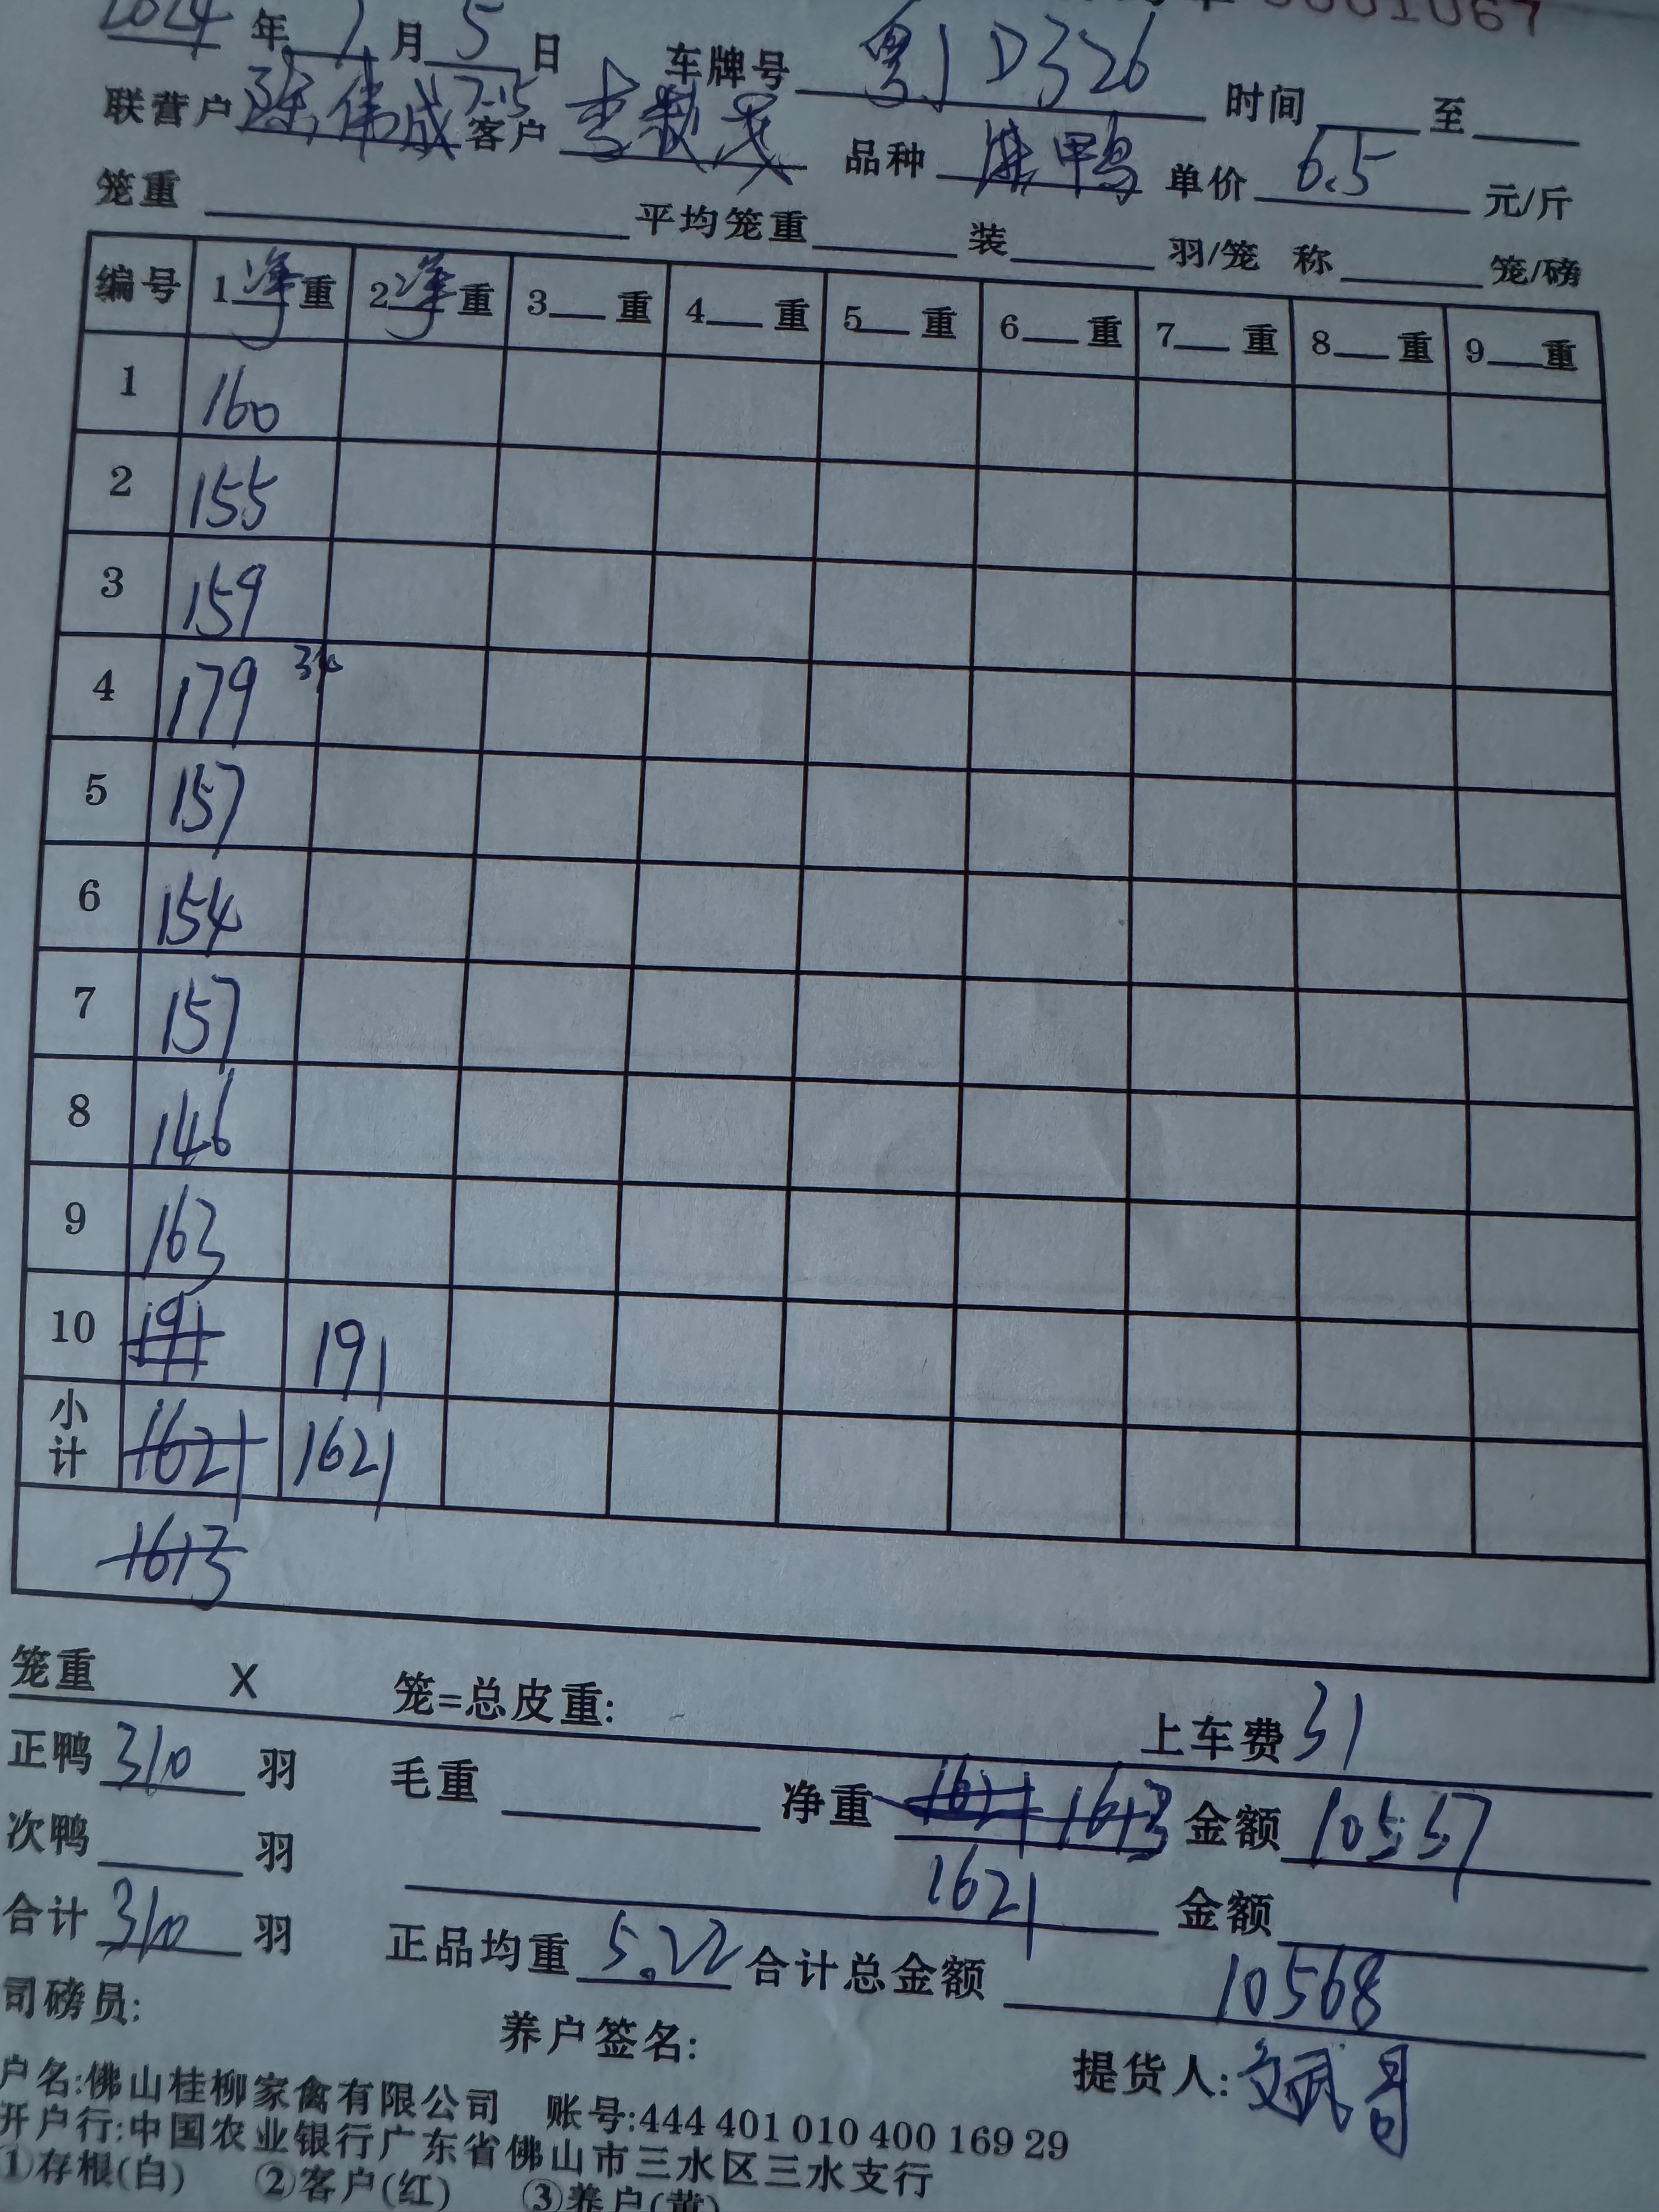 2024 年 7 月 5 日 车牌号 粤J D326 0001067
联营户 陈伟成 7-15 客户 李 品种 麻鸭 单价 6.5 元/斤 时间 至
笼重 平均笼重 装 羽/笼 称 笼/磅
编号 1净重 2净重 3 重 4 重 5 重 6 重 7 重 8 重 9 重
1 160
2 155
3 159
4 179 310
5 157
6 154
7 157
8 146
9 163
10 191 191
小计 1621 1621
1613
笼重 X 笼=总皮重: 上车费 31
正鸭 310 羽 毛重 净重 1621 1613 金额 10557
次鸭 羽 1621 金额
合计 310 羽 正品均重 5.22 合计总金额 10568
司磅员: 养户签名: 提货人: 文武哥
户名:佛山桂柳家禽有限公司 账号:444 401 010 400 169 29
开户行:中国农业银行广东省佛山市三水区三水支行
①存根(白) ②客户(红) ③养户(黄)